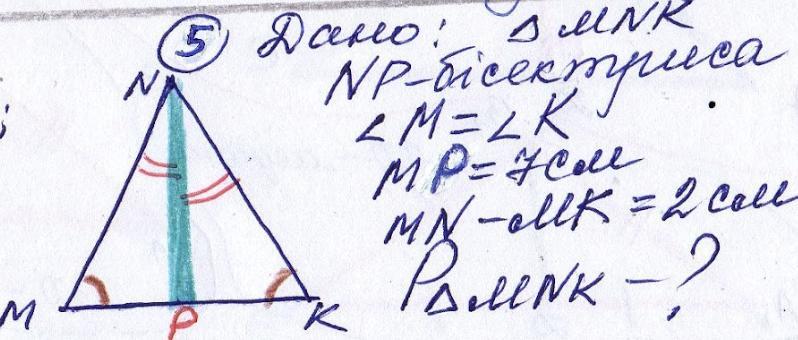 ⑤ Дано: △MNK
NP-бісектриса
∠M=∠K
MP=7см
MN-MK=2см
P△MNK-?
N
M
P
K